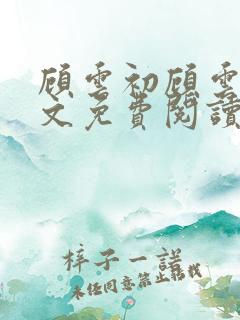 顾云初顾雲
文免費閱讀
梓子一諾
未经同意禁止转载